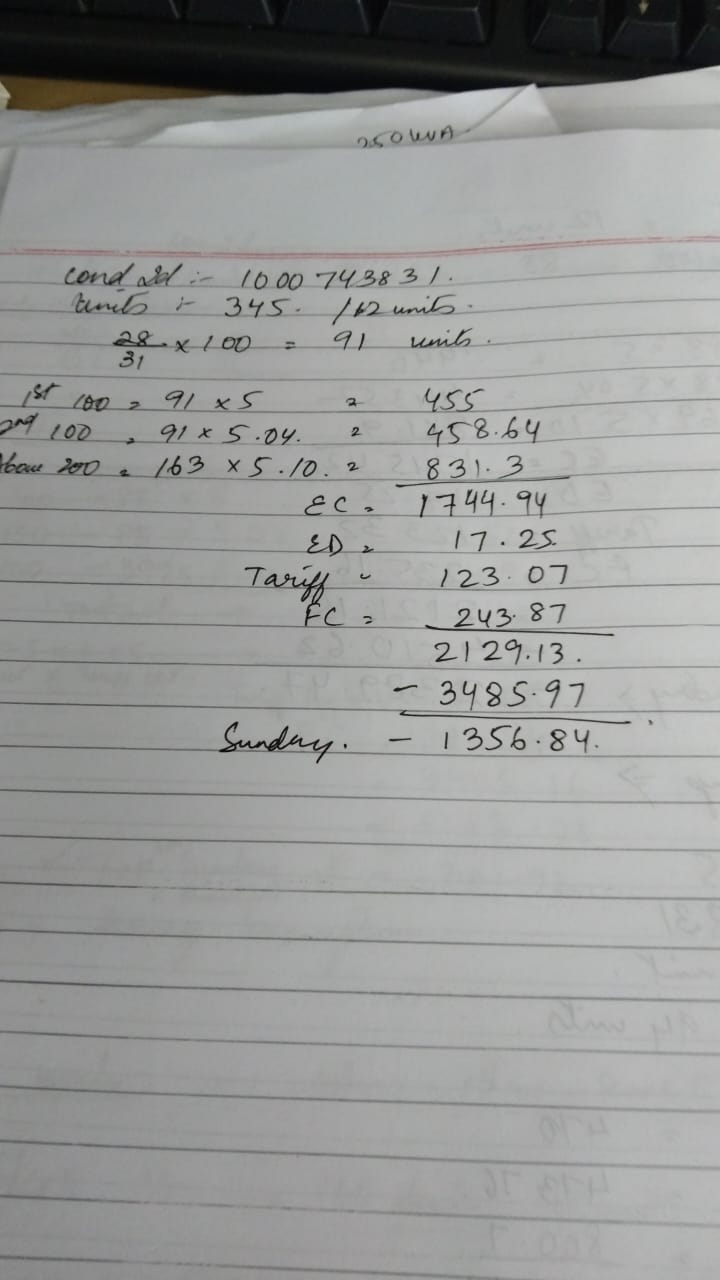 250 KVA
Cond Id :- 1000743831.
Units :- 345. /162 units.
28/31 x 100 = 91 units.
1st 100 = 91 x 5 = 455
2nd 100 = 91 x 5.04. = 458.64
Above 200 = 163 x 5.10. = 831.3
EC = 1744.94
ED = 17.25
Tariff = 123.07
FC = 243.87
2129.13.
- 3485.97
Sundry. - 1356.84.